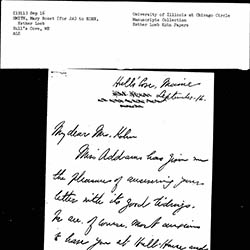 [1911] Sep 16
SMITH, Mary Rozet (for JA) to KOHN,
Esther Loeb
Hull's Cove, ME
ALS
University of Illinois at Chicago Circle
Manuscripts Collection
Esther Loeb Kohn Papers
Hull's Cove, Maine
September 16.
My dear Mrs. Kohn
Miss Addams has given me
the pleasure of answering your
letter with its good tidings.
We are, of course, most anxious
to have you at Hull-House and